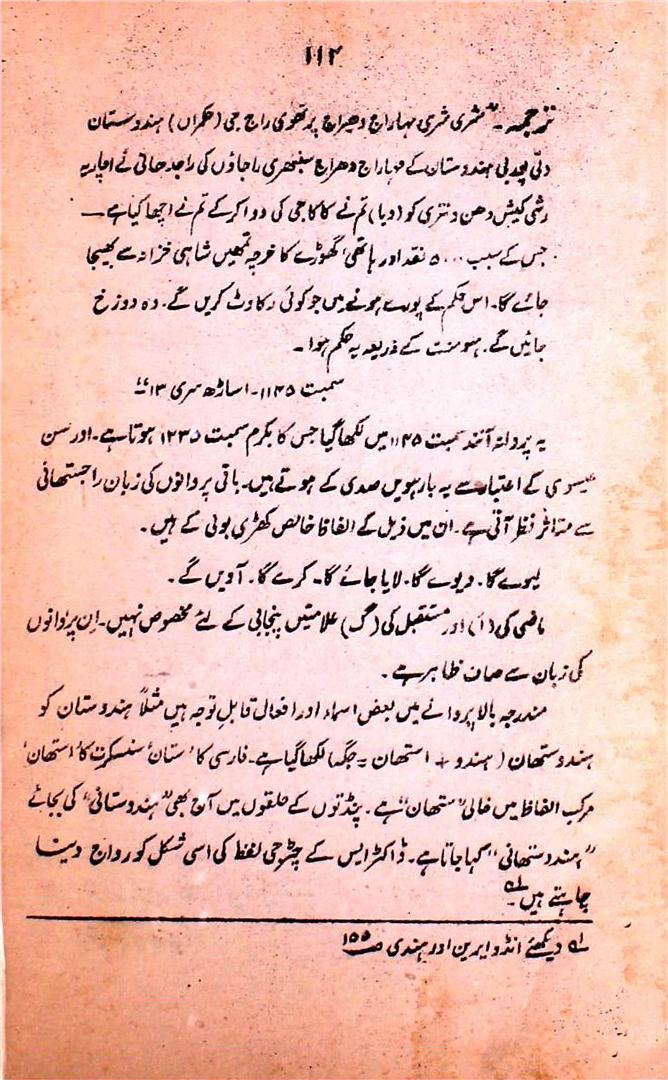 ۱۱۲
ترجمہ۔ "شری شری مہاراج دھیراج پرتھوی راج جی (حکمراں) ہندوستان
دلّی پوربی ہندوستان کے مہاراج دھراج سنبھری راجاؤں کی راجدھانی نے اچاریہ
رشی کیش دھن ونتری کو (دیا) تم نے کاکاجی کی دوا کرکے تم نے اچھا کیا ہے۔
جس کے سبب ۵۰۰۰ نقد اور ہاتھی، گھوڑے کا خرچہ تمہیں شاہی خزانہ سے بھیجا
جائے گا۔ اس حکم کے پورے ہونے میں جو کوئی رکاوٹ کریں گے۔ وہ دوزخ
جائیں گے۔ ہنومنت کے ذریعہ یہ حکم ہوا۔
سمبت ۱۱۴۵۔ اساڑھ سری ۱۳"
یہ پروانہ آنند سمبت ۱۱۴۵ میں لکھا گیا جس کا بکرم سمبت ۱۲۳۵ ہوتا ہے۔ اور سن
عیسوی کے اعتبار سے یہ بارہویں صدی کے ہوتے ہیں۔ باقی پروانوں کی زبان راجستھانی
سے متاثر نظر آتی ہے۔ ان میں ذیل کے الفاظ خالص کھڑی بولی کے ہیں۔
لیوے گا۔ دیوے گا۔ لایا جائے گا۔ کرے گا۔ آویں گے۔
ماضی کی (ا) اور مستقبل کی (گ) علامتیں پنجابی کے لئے مخصوص نہیں۔ اِن پروانوں
کی زبان سے صاف ظاہر ہے۔
مندرجہ بالا پروانے میں بعض اسماء اور افعال قابلِ توجہ ہیں مثلاً ہندوستان کو
ہندوستھان (ہندو + استھان = جگہ) لکھا گیا ہے۔ فارسی کا 'ستان' سنسکرت کا 'استھان'
مرکب الفاظ میں خالی "ستھان" ہے۔ پنڈتوں کے حلقوں میں آج بھی "ہندوستانی" کی بجائے
"ہندوستھانی" کہا جاتا ہے۔ ڈاکٹر ایس کے چٹرجی لفظ کی اسی شکل کو رواج دینا
چاہتے ہیں۔ ؎۱
؎۱ دیکھئے انڈو ایرین اور ہندی ص ۱۵۵